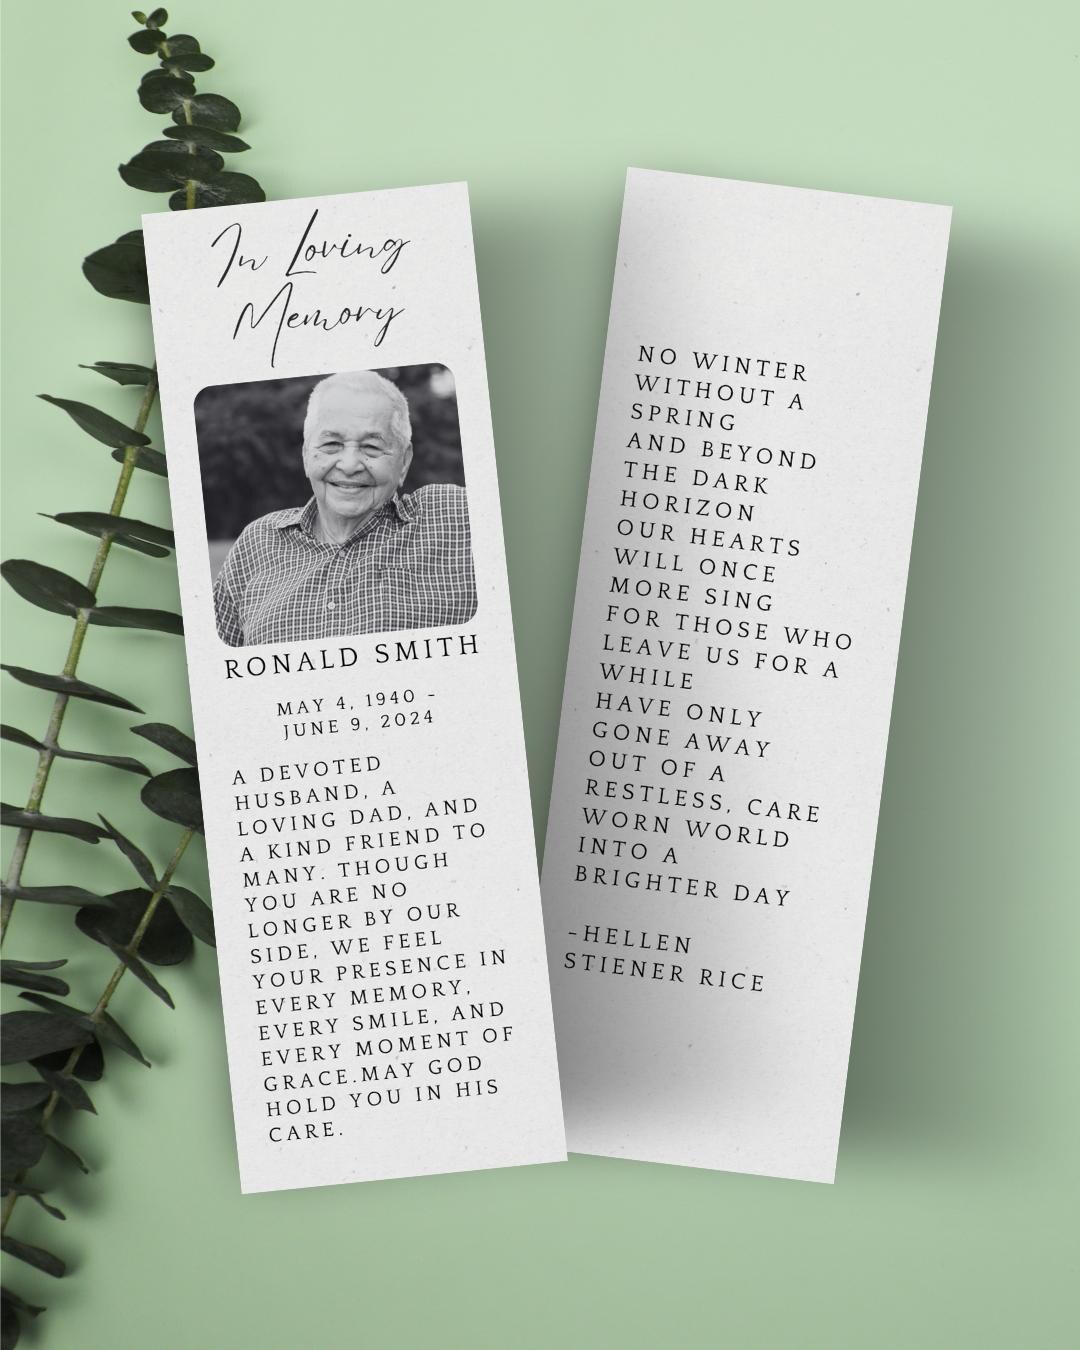 In Loving
Memory
RONALD SMITH
MAY 4, 1940 -
JUNE 9, 2024
A DEVOTED
HUSBAND, A
LOVING DAD, AND
A KIND FRIEND TO
MANY. THOUGH
YOU ARE NO
LONGER BY OUR
SIDE, WE FEEL
YOUR PRESENCE IN
EVERY MEMORY,
EVERY SMILE, AND
EVERY MOMENT OF
GRACE.MAY GOD
HOLD YOU IN HIS
CARE.
NO WINTER
WITHOUT A
SPRING
AND BEYOND
THE DARK
HORIZON
OUR HEARTS
WILL ONCE
MORE SING
FOR THOSE WHO
LEAVE US FOR A
WHILE
HAVE ONLY
GONE AWAY
OUT OF A
RESTLESS, CARE
WORN WORLD
INTO A
BRIGHTER DAY
-HELLEN
STIENER RICE